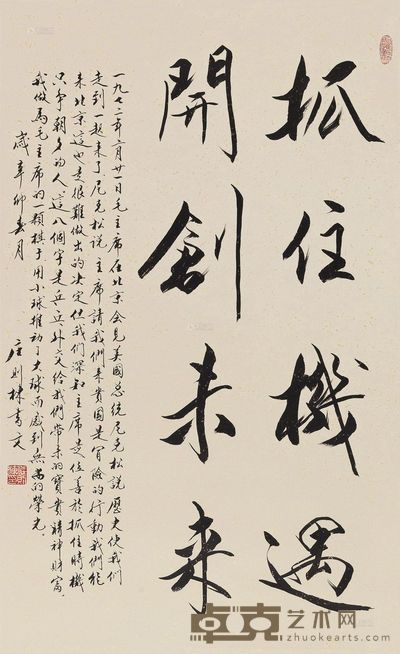 抓住機遇
開創未来
一九七二年二月廿一日毛主席在北京会見美國总统尼克松說歷史使我們
走到一起来了尼克松說主席請我們来貴国是冒險的行動我們能
来北京這也是很難做出的决定但我們深知主席是位善於抓住時機
只争朝夕的人這八個字是乒乓外交給我們帶来的寶貴精神財富
我做爲毛主席的一顆棋子用小球推動了大球而感到無尚的榮光
歲辛卯春月
庄則棟書文
卓克艺术网
zhuokearts.com